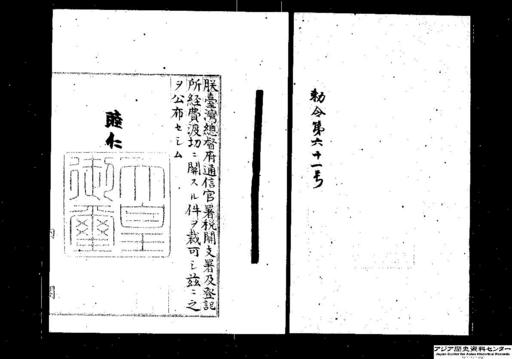 勅令第六十一号
朕臺灣總督府通信官署税關支署及登記
所経費渡切ニ關スル件ヲ裁可シ茲ニ之
ヲ公布セシム
睦仁
天皇
御璽
内
閣
アジア歴史資料センター
Japan Center for Asian Historical Records